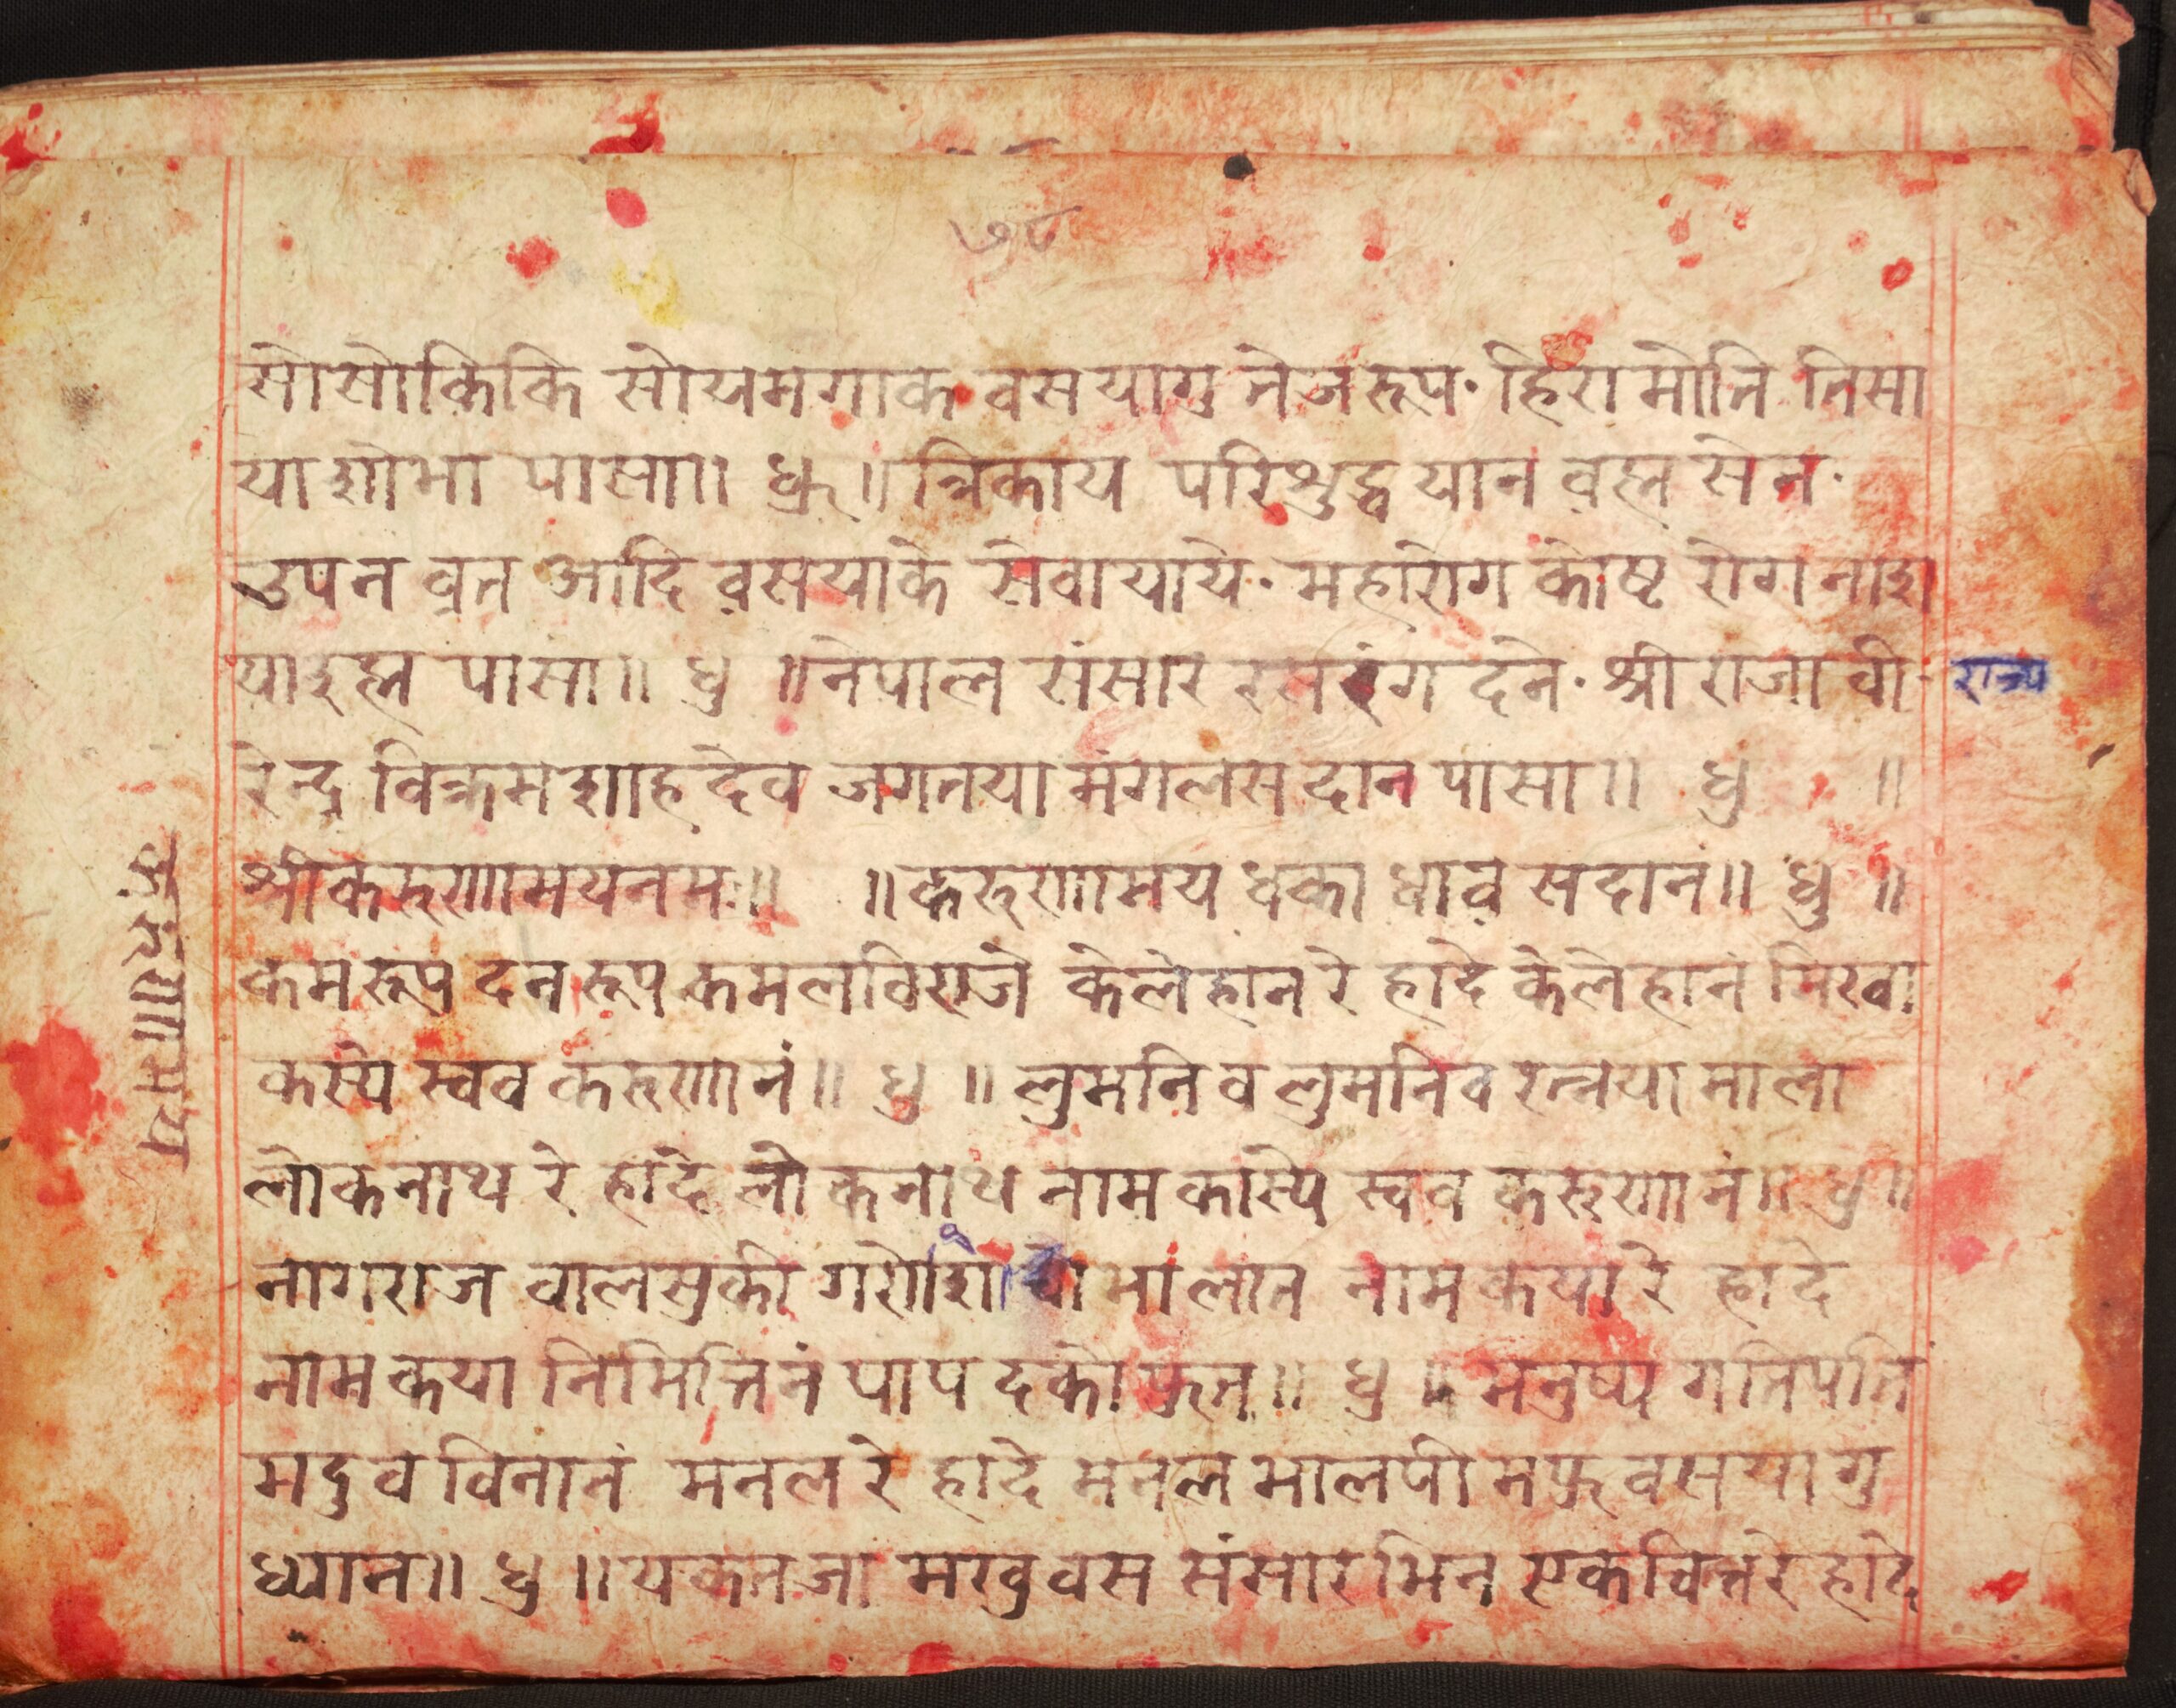 ७८
सोसोकिकि सोयमगाक वसयागु तेजरूप॰ हिरामोति तिसा
याशोभा पासा॥ ध्रु ॥ त्रिकाय परिशुद्ध यान वह्म सेन॰
उपन व्रत आदि वसयाके सेवायाये॰ महारोग कोष्ट रोग नाश
याइह्म पासा॥ ध्रु ॥ नेपाल संसार रसरंग दने॰ श्री राजा वी॰
राज्य
रेन्द्र विक्रमशाहदेव जगतया मंगलस दान पासा॥ ध्रु ॥
श्रीकरुणामयनमः॥ ॥ करुणामय धका धाव सदानं॥ ध्रु ॥
कमरूप दनरूप कमलविराजे केलेहानरे हादे केलेहानं मिखा
कस्ये स्वव करुणानं॥ ध्रु ॥ लुमनिव लुमनिव रत्नया माला
लोकनाथ रे हादे लोकनाथ नाम कास्ये स्वव करुणानं॥ ध्रु ॥
नागराज वालसुकी मालान नाम कयारे हादे
नाम कया निमित्तिनं पाप दको फुत॥ ध्रु ॥ मनुष्य गतिपति
मदुव विनानं मनल रे हादे मनल भालपी मफु वसयागु
ध्यान॥ ध्रु ॥ यकनजा मखुवस संसारभिन एकचित्तरे हादे
करुणामय